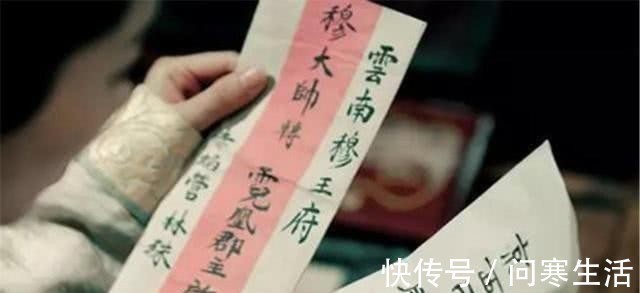 雲南穆王府
穆大帥
霓凰郡主
焰營林殊
快传号 / 问寒生活